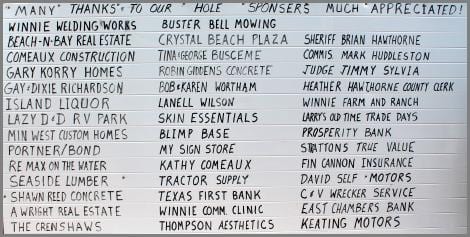 "MANY" THANKS TO OUR "HOLE" SPONSERS MUCH APPRECIATED!
WINNIE WELDING WORKS
BEACH-N-BAY REAL ESTATE
COMEAUX CONSTRUCTION
GARY KORRY HOMES
GAY & DIXIE RICHARDSON
ISLAND LIQUOR
LAZY D D RV PARK
MIN WEST CUSTOM HOMES
PORTNER/BOND
RE MAX ON THE WATER
SEASIDE LUMBER
SHAWN REED CONCRETE
A WRIGHT REAL ESTATE
THE CRENSHAWS
BUSTER BELL MOWING
CRYSTAL BEACH PLAZA
TINA & GEORGE BUSCEME
ROBIN GIDDENS CONCRETE
BOB & KAREN WORTHAM
LANELL WILSON
SKIN ESSENTIALS
BLIMP BASE
MY SIGN STORE
KATHY COMEAUX
TRACTOR SUPPLY
TEXAS FIRST BANK
WINNIE COMM. CLINIC
THOMPSON AESTHETICS
SHERIFF BRIAN HAWTHORNE
COMMIS. MARK HUDDLESTON
JUDGE JIMMY SYLVIA
HEATHER HAWTHORNE COUNTY CLERK
WINNIE FARM AND RANCH
LARRY'S OLD TIME TRADE DAYS
PROSPERITY BANK
STATTONS TRUE VALUE
FIN CANNON INSURANCE
DAVID SELF MOTORS
C & V WRECKER SERVICE
EAST CHAMBERS BANK
KEATING MOTORS